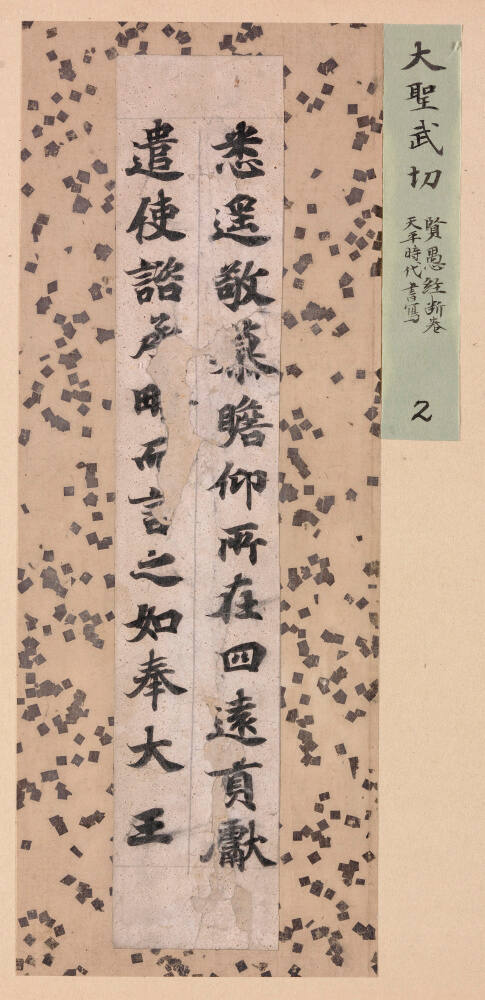 大聖武切
賢愚経断巻
天平時代書寫
2
悉遥敬慕瞻仰所在四遠貢獻
遣使諮承而言之如奉大王